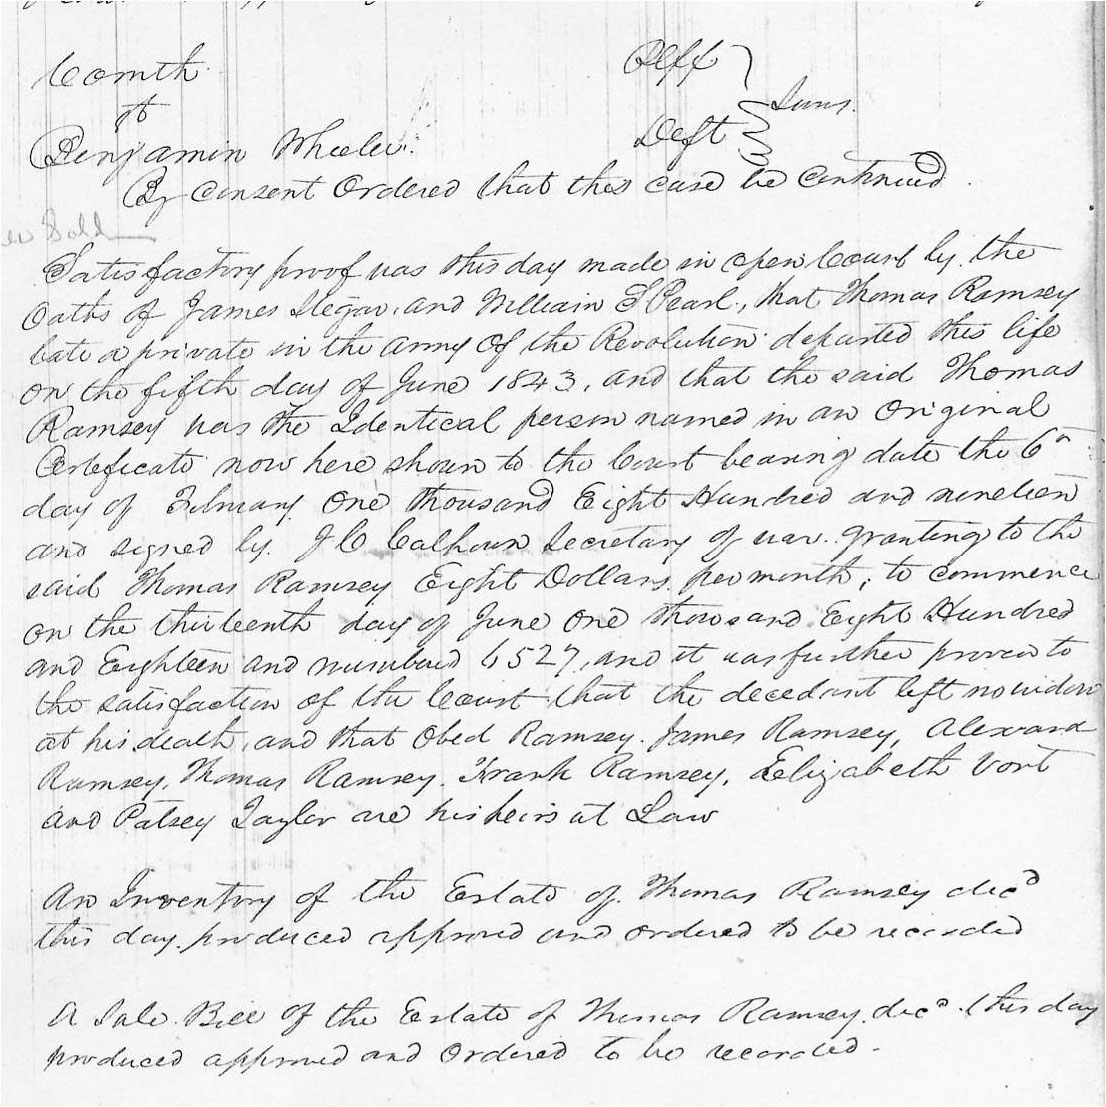 Comth Plff
vs Sums.
Benjamin Wheeler. Deft
By consent Ordered that this case be continued
Satisfactory proof was this day made in open Court by the
Oaths of James and William S Pearl, that Thomas Ramsey
late a private in the army of the Revolution departed this life
on the fifth day of June 1843, and that the said Thomas
Ramsey was the Identical person named in an Original
Certificate now here shown to the Court bearing date the 6th
day of February One thousand Eight Hundred and nineteen
and signed by J C Calhoun Secretary of war granting to the
said Thomas Ramsey Eight Dollars per month, to commence
on the thirteenth day of June One thousand Eight Hundred
and Eighteen and numbered 6527, and it was further proven to
the satisfaction of the Court that the decedant left no widow
at his death, and that Obed Ramsey. James Ramsey, Alexand
Ramsey, Thomas Ramsey. Frank Ramsey, Elizabeth Vort
and Patsey Taylor are his heirs at Law
An Inventory of the Estate of Thomas Ramsey decd
this day produced approved and ordered to be recorded
A Sale Bill of the Estate of Thomas Ramsey decd this day
produced approved and Ordered to be recorded.